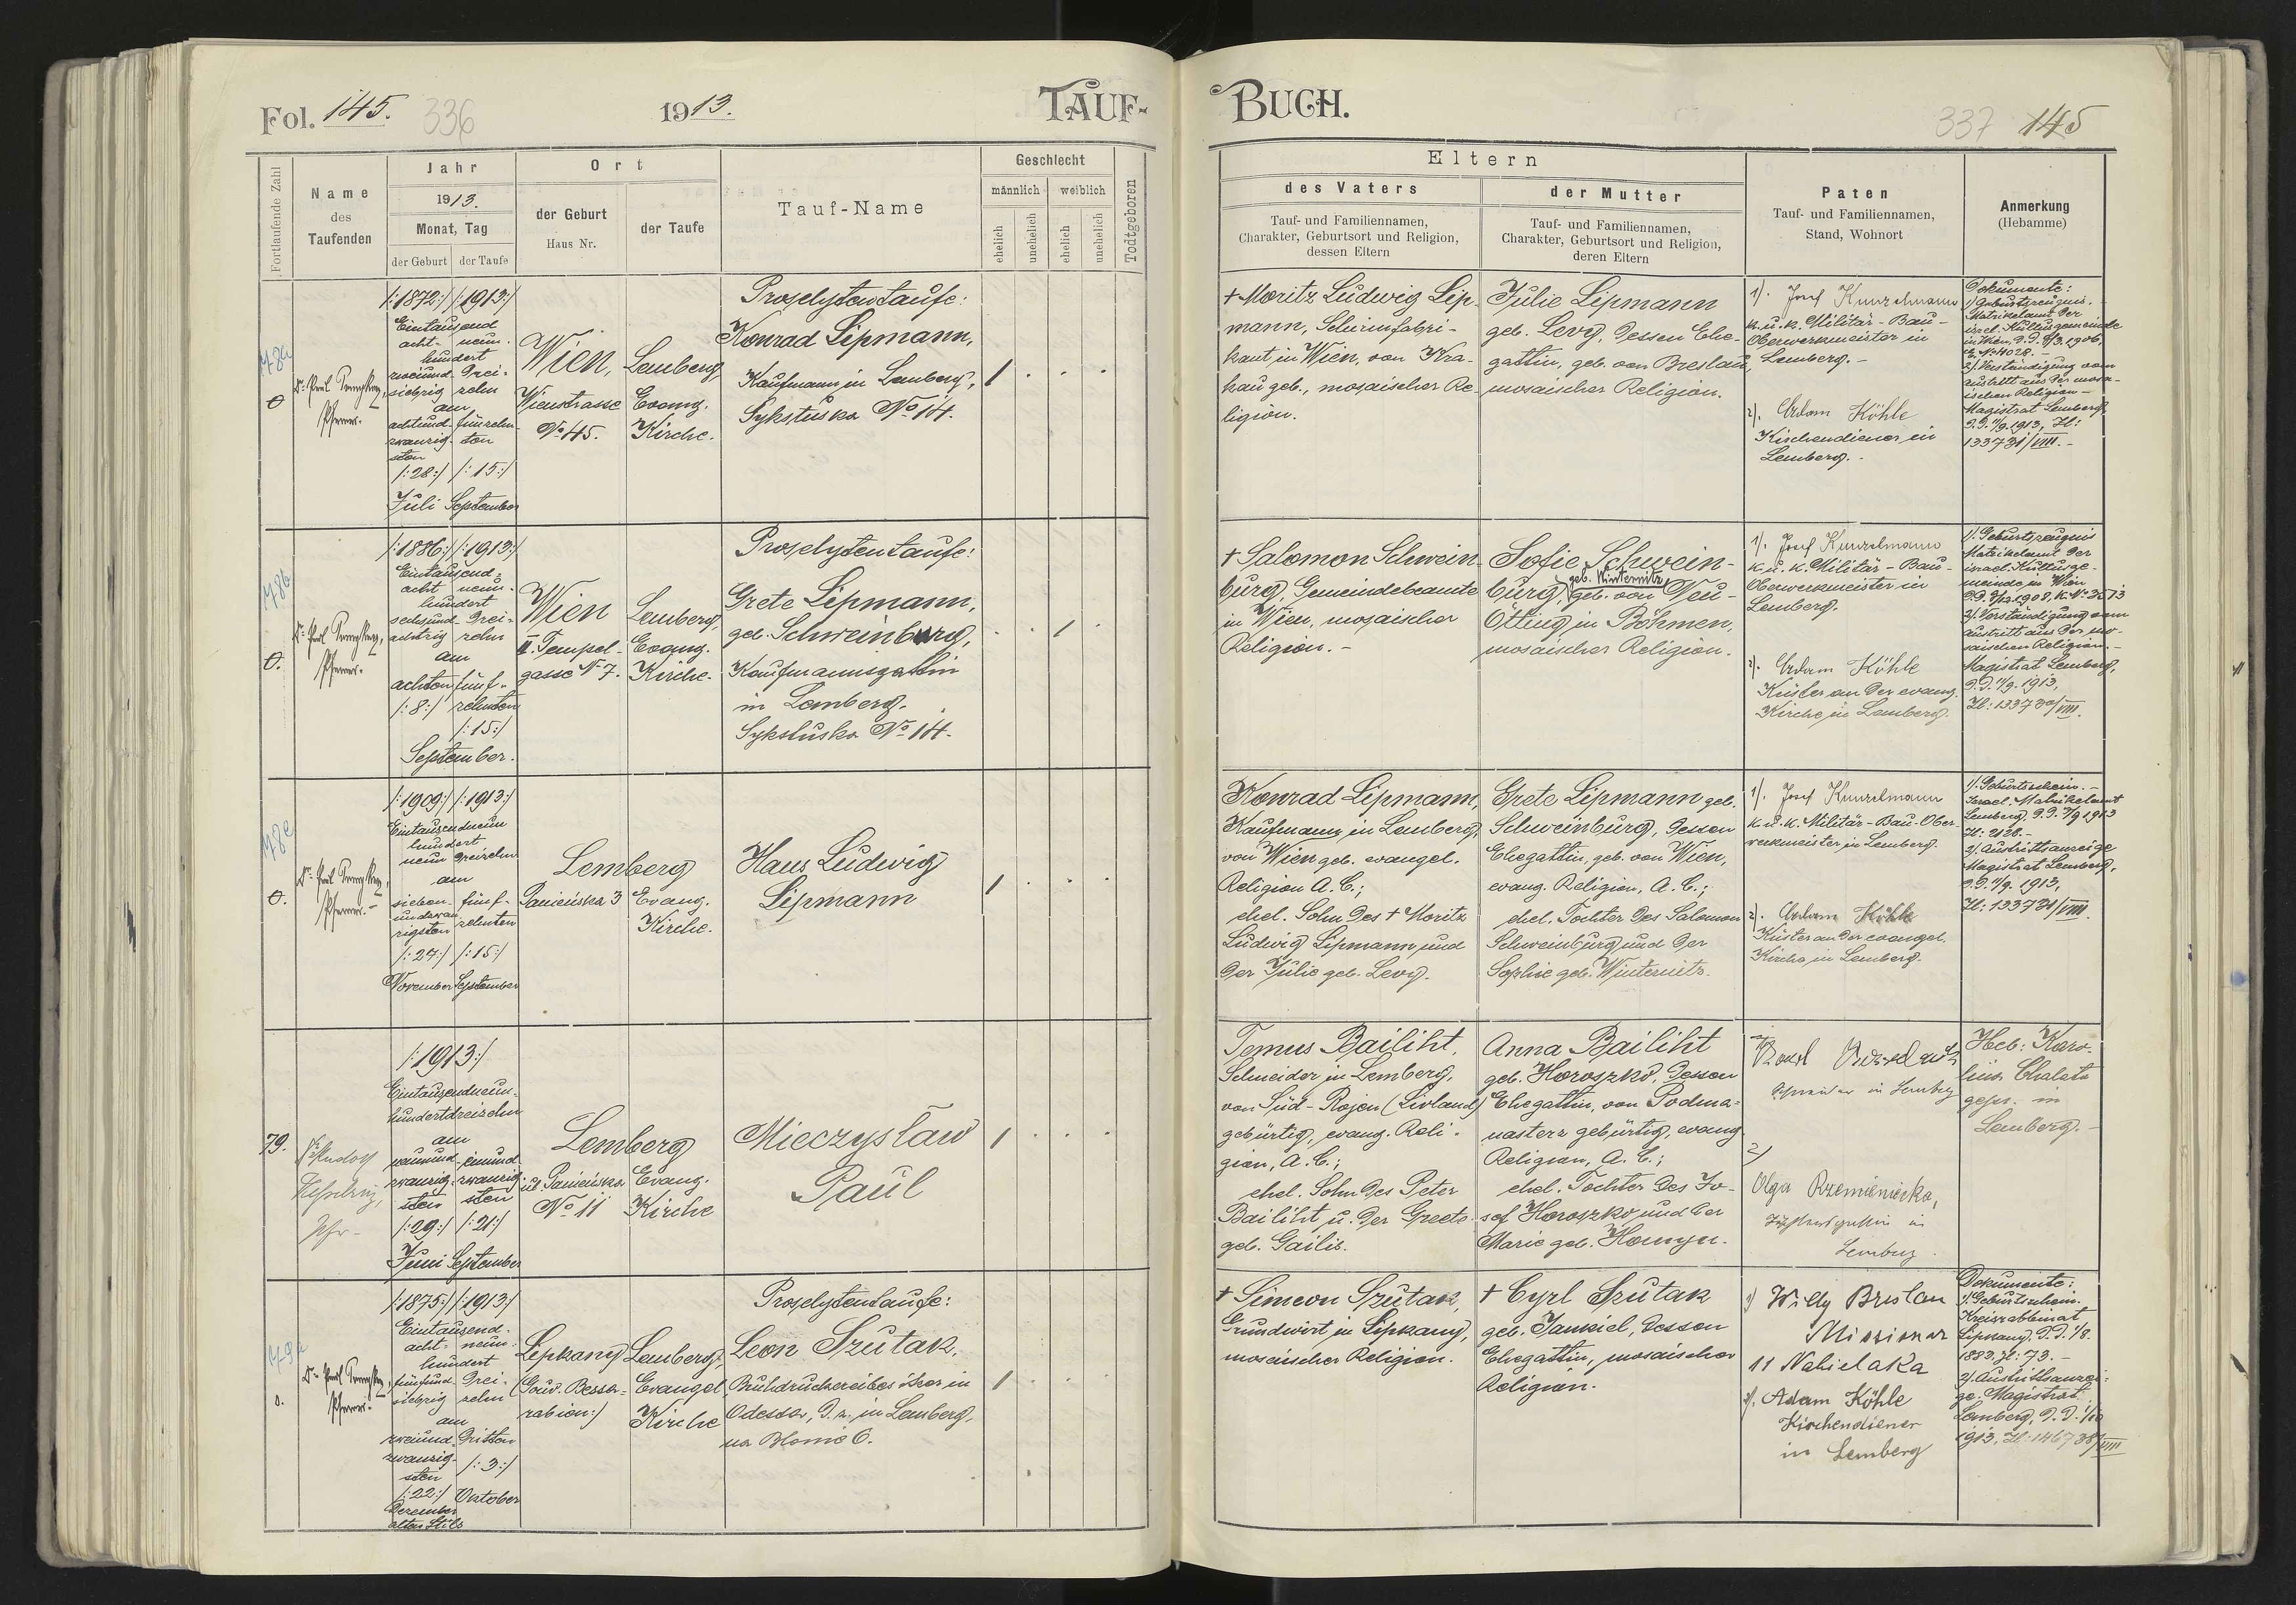 Fol. 145. 336
1913.
TAUF-
BUCH.
337 145
Fortlaufende Zahl
Name
des
Taufenden
Jahr
1913.
Monat, Tag
der Geburt
der Taufe
Ort
der Geburt
Haus Nr.
der Taufe
Tauf-Name
Geschlecht
männlich
weiblich
ehelich
unehelich
ehelich
unehelich
Todtgeboren
Eltern
des Vaters
Tauf- und Familiennamen,
Charakter, Geburtsort und Religion,
dessen Eltern
der Mutter
Tauf- und Familiennamen,
Charakter, Geburtsort und Religion,
deren Eltern
Paten
Tauf- und Familiennamen,
Stand, Wohnort
Anmerkung
(Hebamme)
78a
Pfarrer.
/:1872:/ /:1913:/
Eintausend
acht- neun-
hundert
zweiund- drei-
siebzig zehn
am
achtund- fünfzehn-
zwanzig- ten
sten
/:28:/ /:15:/
Juli September
Wien,
Wienstrasse
No 45.
Lemberg,
Evang.
Kirche.
Proselytentaufe:
Konrad Lipmann,
Kaufmann in Lemberg,
Sykstuska No 14.
+ Moritz Ludwig Lip-
mann, Schirmfabri-
kant in Wien, von Kra-
kau geb., mosaischer Re-
ligion.
Julie Lipmann
geb. Levy, dessen Ehe-
gattin, geb. von Breslau,
mosaischer Religion.
1). Josef Kunzelmann
k. u. k. Militär-Bau-
Oberwerkmeister in
Lemberg.-
2). Adam Köhle
Kirchendiener in
Lemberg.-
Dokumente:
1) Geburtszeugnis.
Matrikelamt der
isrel. Kultusgemeinde
in Wien,
2). Verständigung vom
Austritt aus der mosa-
ischen Religion-
Magistrat Lemberg,
d.d. 11/9. 1913, Zl:
133731/VIII.-
78b
Pfarrer.
/:1886:/ /:1913:/
Eintausend-
acht neun-
hundert
sechsund- drei-
achtzig zehn
am
achten fünf-
/:8:/ zehnten
/:15:/
September.
Wien
II. Tempel-
gasse No 7.
Lemberg,
Evang.
Kirche.
Proselytentaufe:
Grete Lipmann,
geb. Schweinburg,
Kaufmannsgattin
in Lemberg,
Sykstuska No 14.
+ Salomon Schwein-
burg, Gemeindebeamte
in Wien, mosaischer
Religion.-
Sofie Schwein-
geb. Winternitz
burg, geb. von Neu-
Ötting in Böhmen,
mosaischer Religion.
1). Josef Kunzelmann
k. u. k. Militär-Bau-
Oberwerkmeister in
Lemberg.
2). Adam Köhle
Küster an der evang.
Kirche in Lemberg.
1). Geburtszeugnis
Matrikelamt der
israel. Kultusge-
meinde in Wien
2). Verständigung vom
Austritt aus der mo-
saischen Religion.-
Magistrat Lemberg,
d.d. 11/9. 1913,
Zl: 133730/VIII.
78c
Pfarrer.-
/:1909:/ /:1913:/
Eintausendneun
hundert
neun dreizehn
am
sieben- fünf-
undzwan- zehnten
zigsten
/:27:/ /:15:/
November September
Lemberg
Panieńska 3 Evang.
Kirche.
Hans Ludwig
Lipmann
Konrad Lipmann,
Kaufmann in Lemberg,
von Wien geb. evangel.
Religion A. C.;
ehel. Sohn des + Moritz
Ludwig Lipmann und
der Julie geb. Levy.
Grete Lipmann geb.
Schweinburg, dessen
Ehegattin, geb. von Wien,
evang. Religion, A. C.;
ehel. Tochter des Salomon
Schweinburg und der
Sophie geb. Winternitz.
1). Josef Kunzelmann
k. u. k. Militär-Bau-Ober-
werkmeister in Lemberg.
2). Adam Köhle
Küster an der evangel.
Kirche in Lemberg.
1). Geburtsschein.-
Israel. Matrikelamt
Lemberg,
2). Austrittsanzeige
Magistrat Lemberg,
d.d. 11/9. 1913,
Zl: 133731/VIII.
79.
/:1913:/
Eintausendneun-
hundertdreizehn
am
neunund- einund-
zwanzig- zwanzig-
sten sten
/:29:/ /:21:/
Juni September
Lemberg
ul. Panieńska Evang.
No 11 Kirche
Mieczysław
Paul
Temus Bailiht,
Schneider in Lemberg,
von Süd-Rujen (Livland)
gebürtig, evang. Reli-
gion, A. C.;
ehel. Sohn des Peter
Bailiht u. der Greete
geb. Gailis.
Anna Bailiht
geb. Horoszko, dessen
Ehegattin, von Podma-
nasterz gebürtig, evang.
Religion, A. C.;
ehel. Tochter des Jo-
sef Horoszko und der
Marie geb. Hounyn.
in Lemberg
2)
Olga Rzemieniecka,
in
Lemberg.
Heb: Karo-
lina Chalata
gepr. in
Lemberg.-
79a
Pfarrer.
/:1875:/ /:1913:/
Eintausend-
acht- neun-
hundert
fünfund- drei-
siebzig zehn
am
zweiund- dritten
zwanzig-
sten /:3:/
/:22:/ Oktober
Dezember
alten Stils
Lipkany
(Gouv. Bessa-
rabien:)
Lemberg,
Evangel.
Kirche
Proselytentaufe:
Leon Szutak,
Buchdruckereibesitzer in
Odessa, d. z. in Lemberg,
na Błonie 6.
+ Simeon Szutak,
Grundwirt in Lipkany,
mosaischer Religion.
+ Cyrl Szutak
geb. Jankiel, dessen
Ehegattin, mosaischer
Religion.
1) Willy Breslau
Missionar
11 Nabielaka
2). Adam Köhle
Kirchendiener
in Lemberg
Dokumente:
1). Geburtsschein.
Kreisrabbinat
Lipkany, d.d. 1/8.
1883, Zl: 73.-
2). Austrittsanzei-
ge. Magistrat
Lemberg, d.d. 1/10
1913, Zl: 146738/VIII